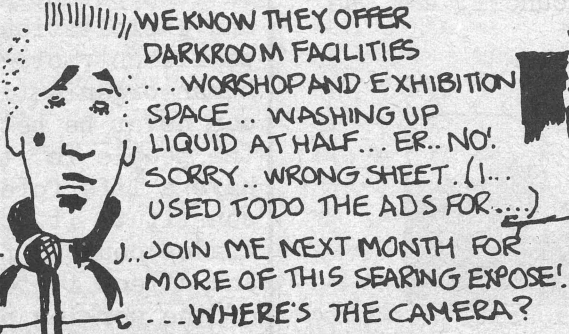 WE KNOW THEY OFFER
DARKROOM FACILITIES
.... WORKSHOP AND EXHIBITION
SPACE.. WASHING UP
LIQUID AT HALF... ER.. NO!
SORRY.. WRONG SHEET. (I...
USED TO DO THE ADS FOR....)
..JOIN ME NEXT MONTH FOR
MORE OF THIS SEARING EXPOSE!
...WHERE'S THE CAMERA?